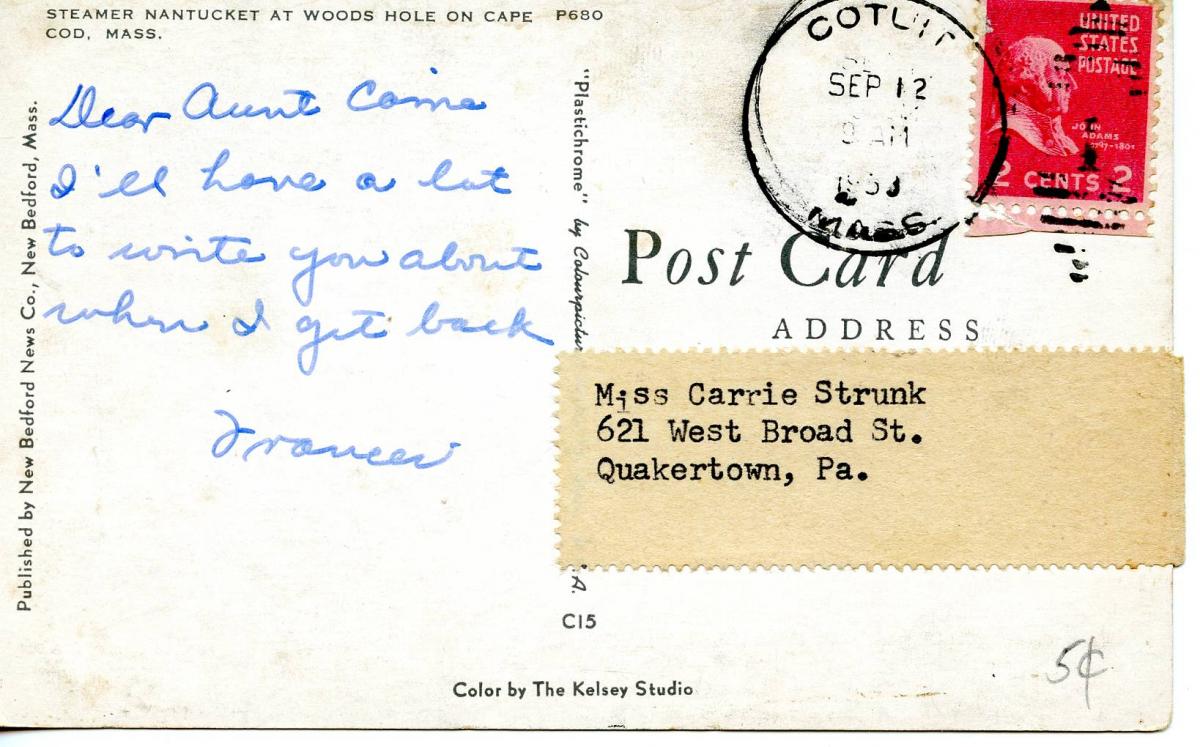 STEAMER NANTUCKET AT WOODS HOLE ON CAPE P680
COD, MASS.
Published by New Bedford News Co., New Bedford, Mass.
Dear Aunt Carrie
I'll have a lot
to write you about
when I get back
Frances
"Plastichrome" by Colourpictur
.A.
C15
COTUIT
SEP 12
9 AM
MASS.
UNITED
STATES
POSTAGE
JOHN
ADAMS
1797-1801
2 CENTS 2
Post Card
ADDRESS
Miss Carrie Strunk
621 West Broad St.
Quakertown, Pa.
Color by The Kelsey Studio
5¢